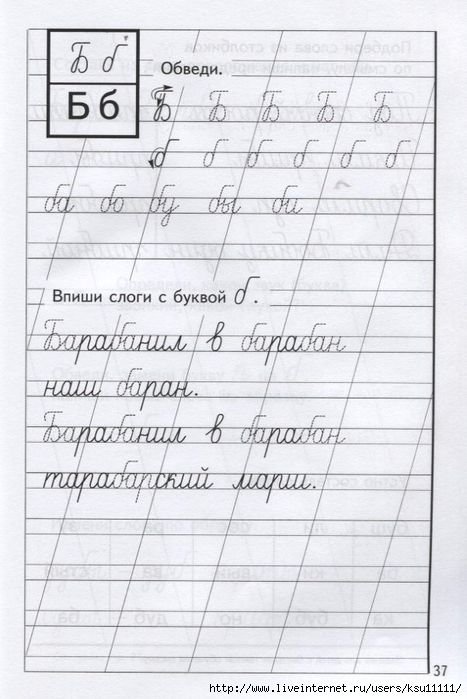 Б б
Обведи.
Б б
Б Б Б Б Б
б б б б б б
ба бо бу бы би
Впиши слоги с буквой б.
Барабанил в барабан
наш баран.
Барабанил в барабан
тарабарский марш.
37
http://www.liveinternet.ru/users/ksu11111/